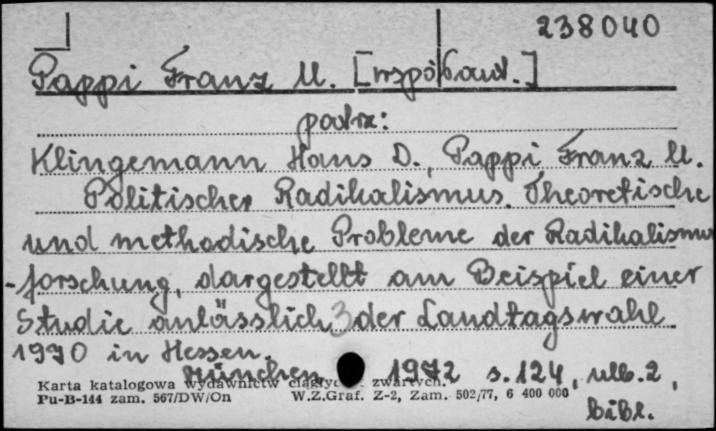 238040
Pappi Franz U. [współaut.]
patrz:
Klingemann Hans D., Pappi Franz U.
Politischer Radikalismus. Theoretische
und methodische Probleme der Radikalismus
-forschung, dargestellt am Beispiel einer
Studie anlässlich 3 der Landtagswahl
1970 in Hessen.
München 1972 s. 124, nlb. 2,
bibl.
Karta katalogowa wydawnictw ciągłych zwartych.
Pu-B-144 zam. 567/DW/On W.Z.Graf. Z-2, Zam. 502/77, 6 400 000